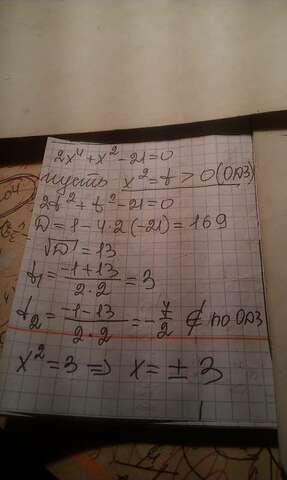 2x⁴+x²-21=0
пусть x²=t>0(ОДЗ)
2t²+t²-21=0
D=1-4·2(-21)=169
√D=13
t₁=(-1+13)/(2·2)=3
t₂=(-1-13)/(2·2)=-7/2 ∉ по ОДЗ
x²=3 ⇒ x=±3